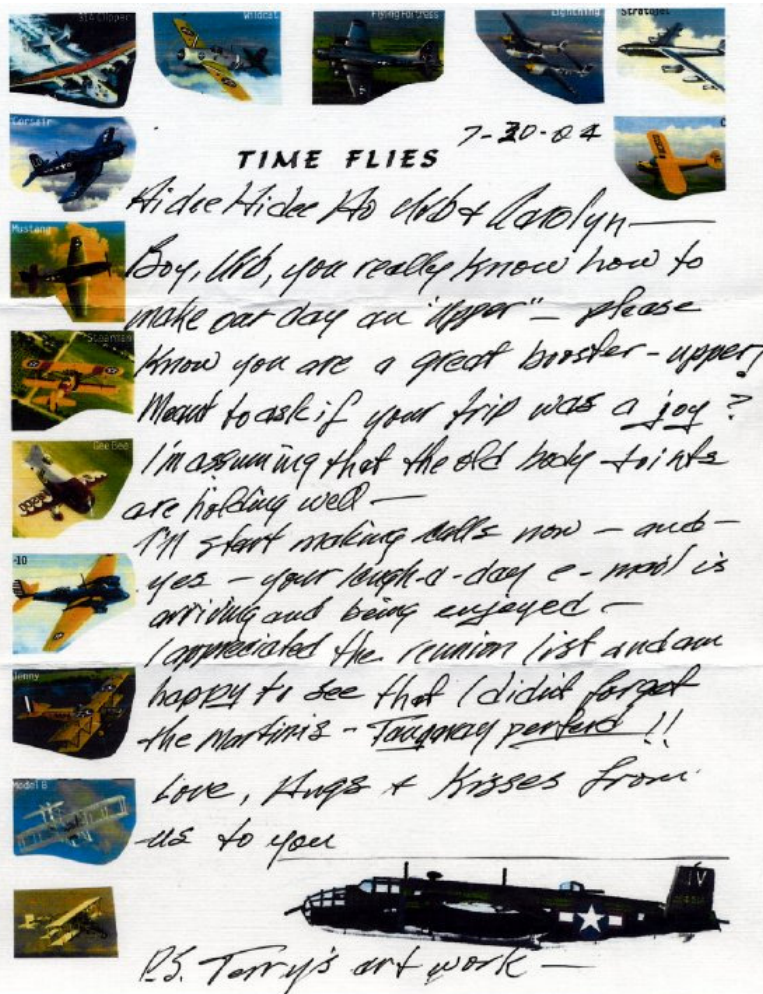 314 Clipper
Wildcat
Flying Fortress
Lightning
Stratojet
Corsair
7-30-04
TIME FLIES
Hidee Hidee Ho Urb & Carolyn —
Mustang
Boy, Urb, you really know how to
make our day an "upper" — please
Stearman
know you are a great booster-upper!
Meant to ask if your trip was a joy?
GeeBee
I'm assuming that the old body joints
are holding well —
I'll start making calls now — and —
-10
yes — your laugh-a-day e-mail is
arriving and being enjoyed —
I appreciated the reunion list and am
Jenny
happy to see that I didn't forget
the Martinis - Tanqueray perferd!!
Model B
Love, Hugs & Kisses from
us to you
IV
P.S. Terry's art work —